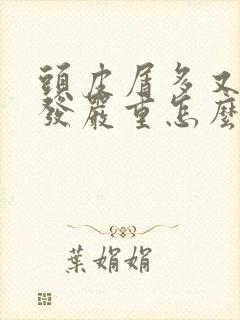 頭皮屑多又
發嚴重怎麼
葉娟娟